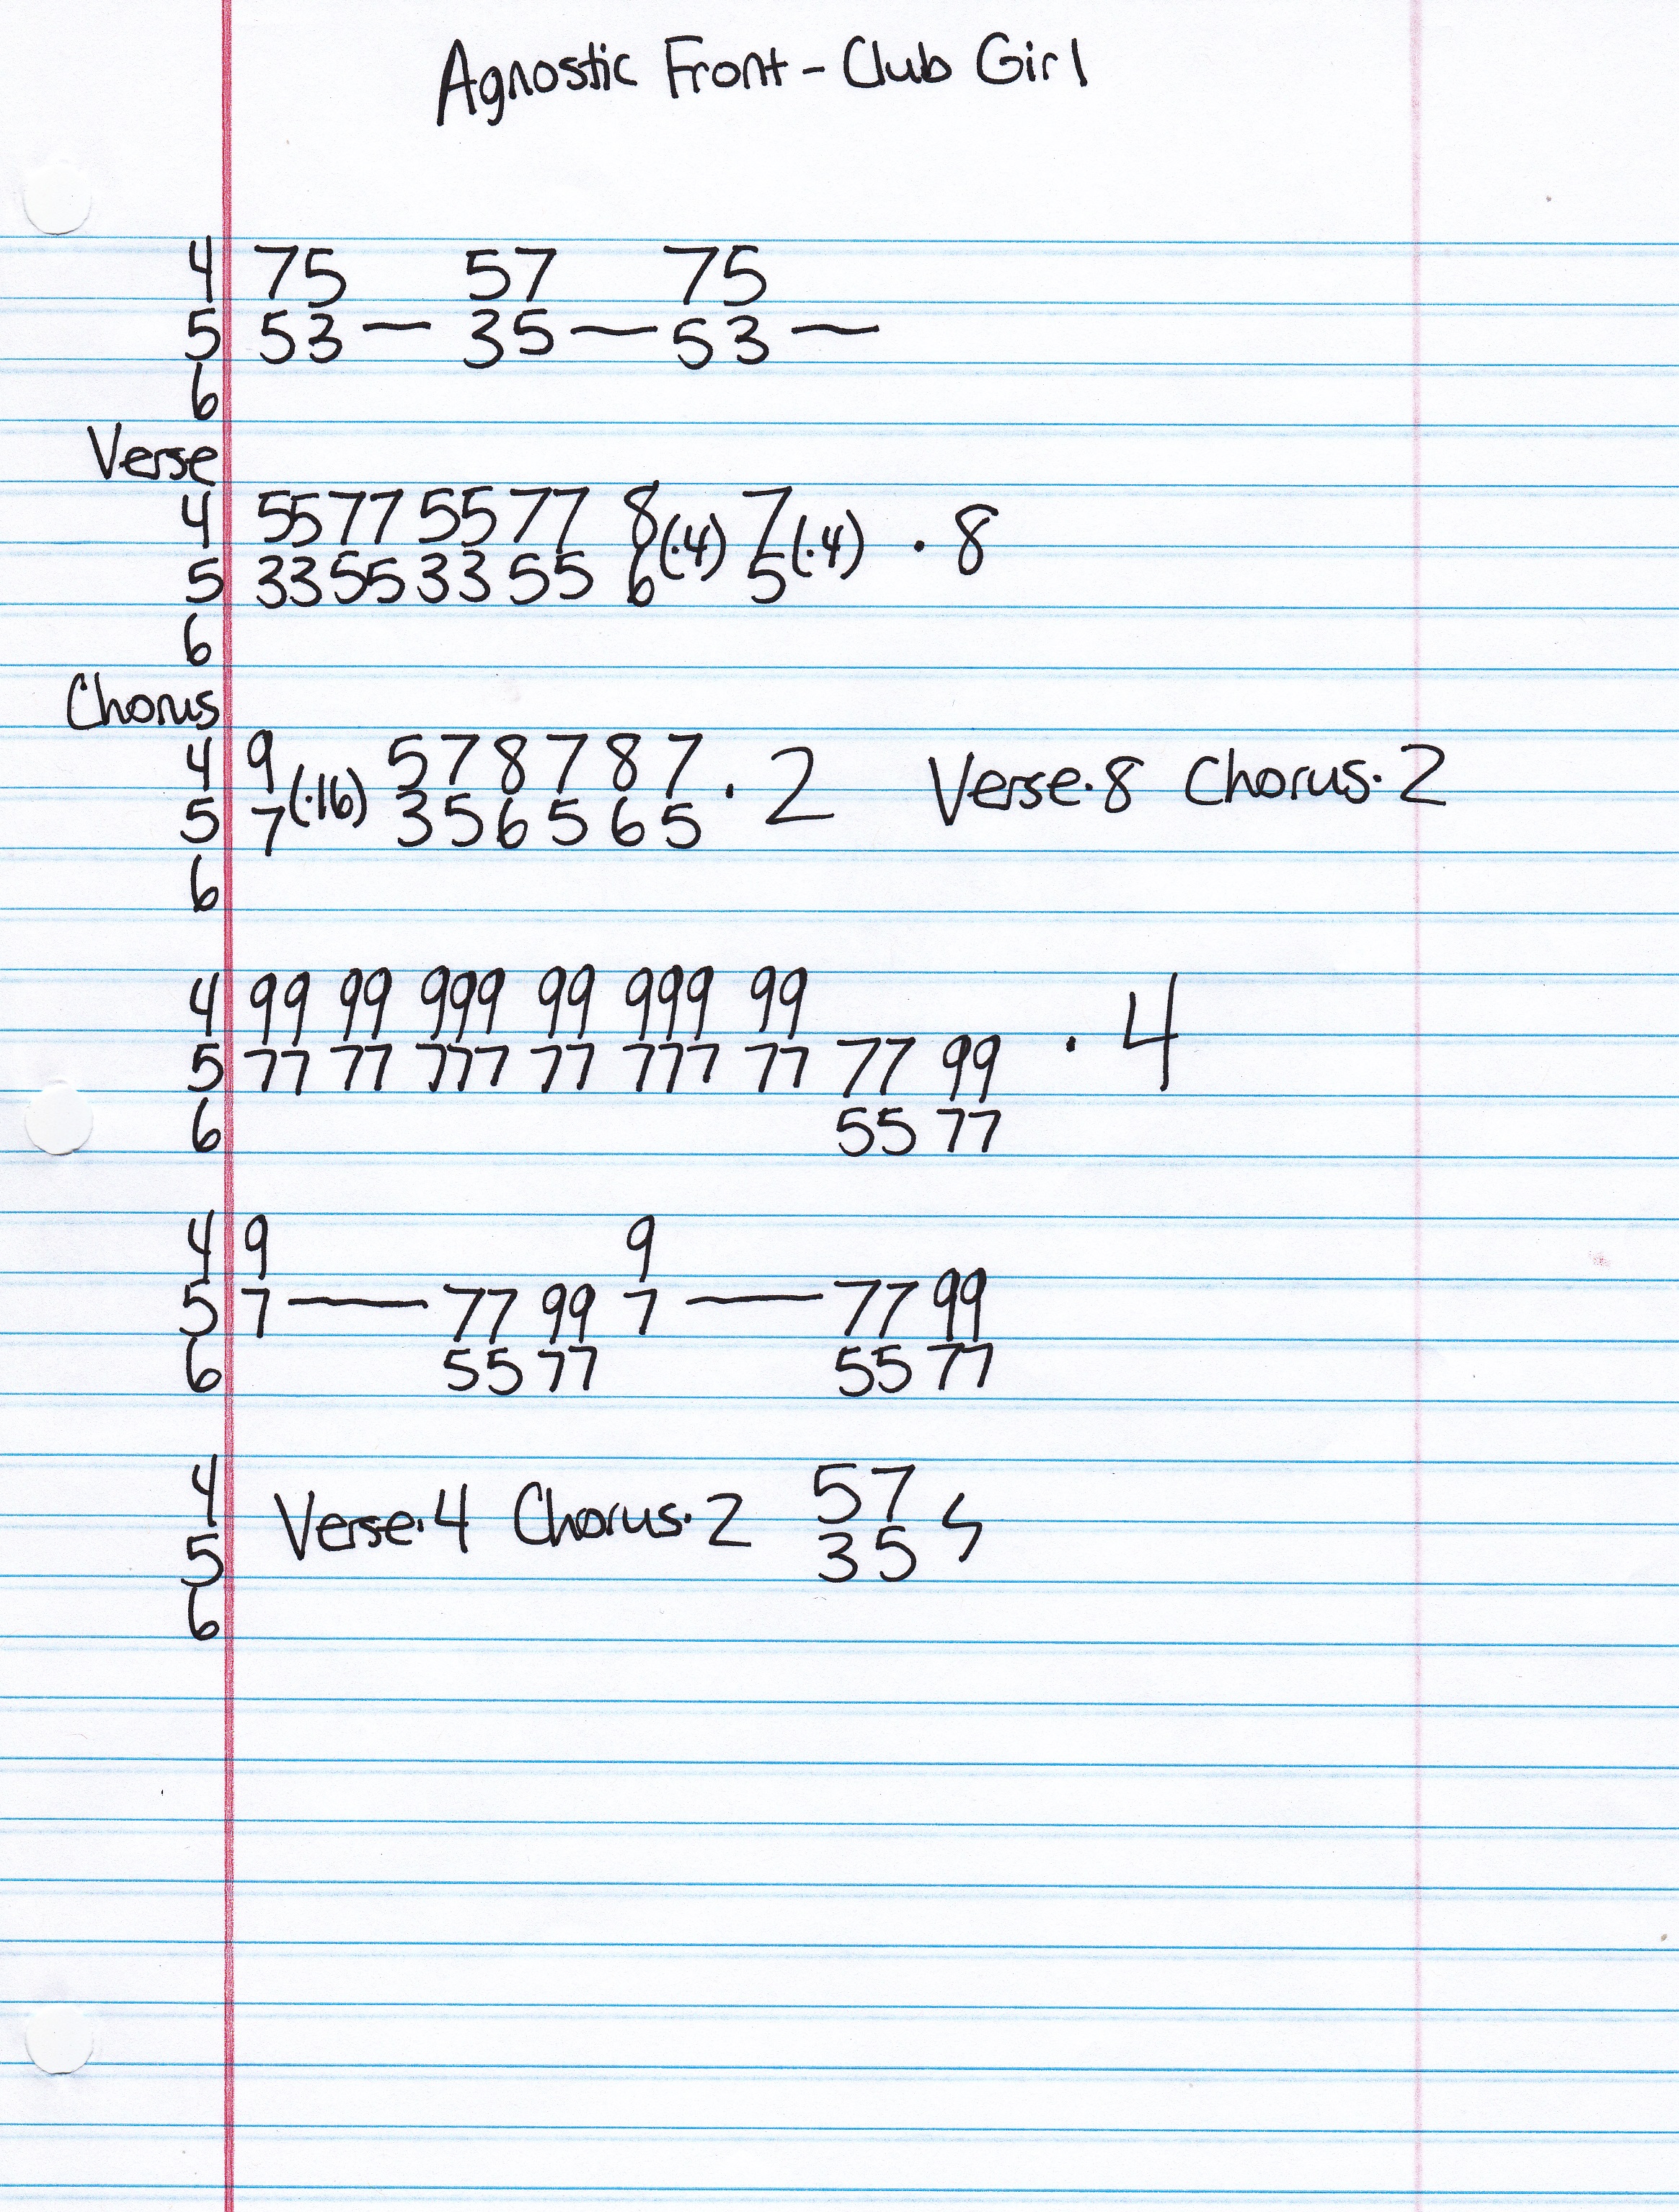 Agnostic Front - Club Girl
4 75 57 75
5 53 — 35 — 53 —
6
Verse
4 55 77 55 77 8(·4) 7(·4) · 8
5 33 55 33 55 6 5
6
Chorus
4 9(·16) 5 7 8 7 8 7 · 2 Verse·8 Chorus·2
5 7 3 5 6 5 6 5
6
4 99 99 999 99 999 99 · 4
5 77 77 777 77 777 77 77 99
6 55 77
4 9 9
5 7 — 77 99 7 — 77 99
6 55 77 55 77
4 Verse·4 Chorus·2 57
5 35
6